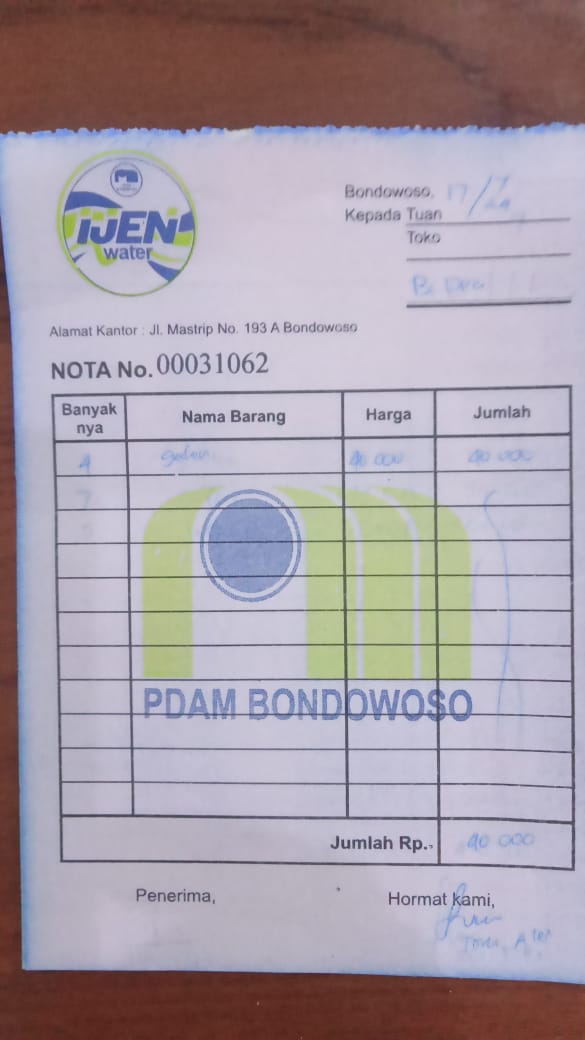 IJEN
water
Bondowoso, 17/7
Kepada Tuan
Toko
Alamat Kantor : Jl. Mastrip No. 193 A Bondowoso
NOTA No. 00031062
Banyak nya Nama Barang Harga Jumlah
4 galon 40 000 40 000
PDAM BONDOWOSO
Jumlah Rp. 40 000
Penerima, Hormat kami,